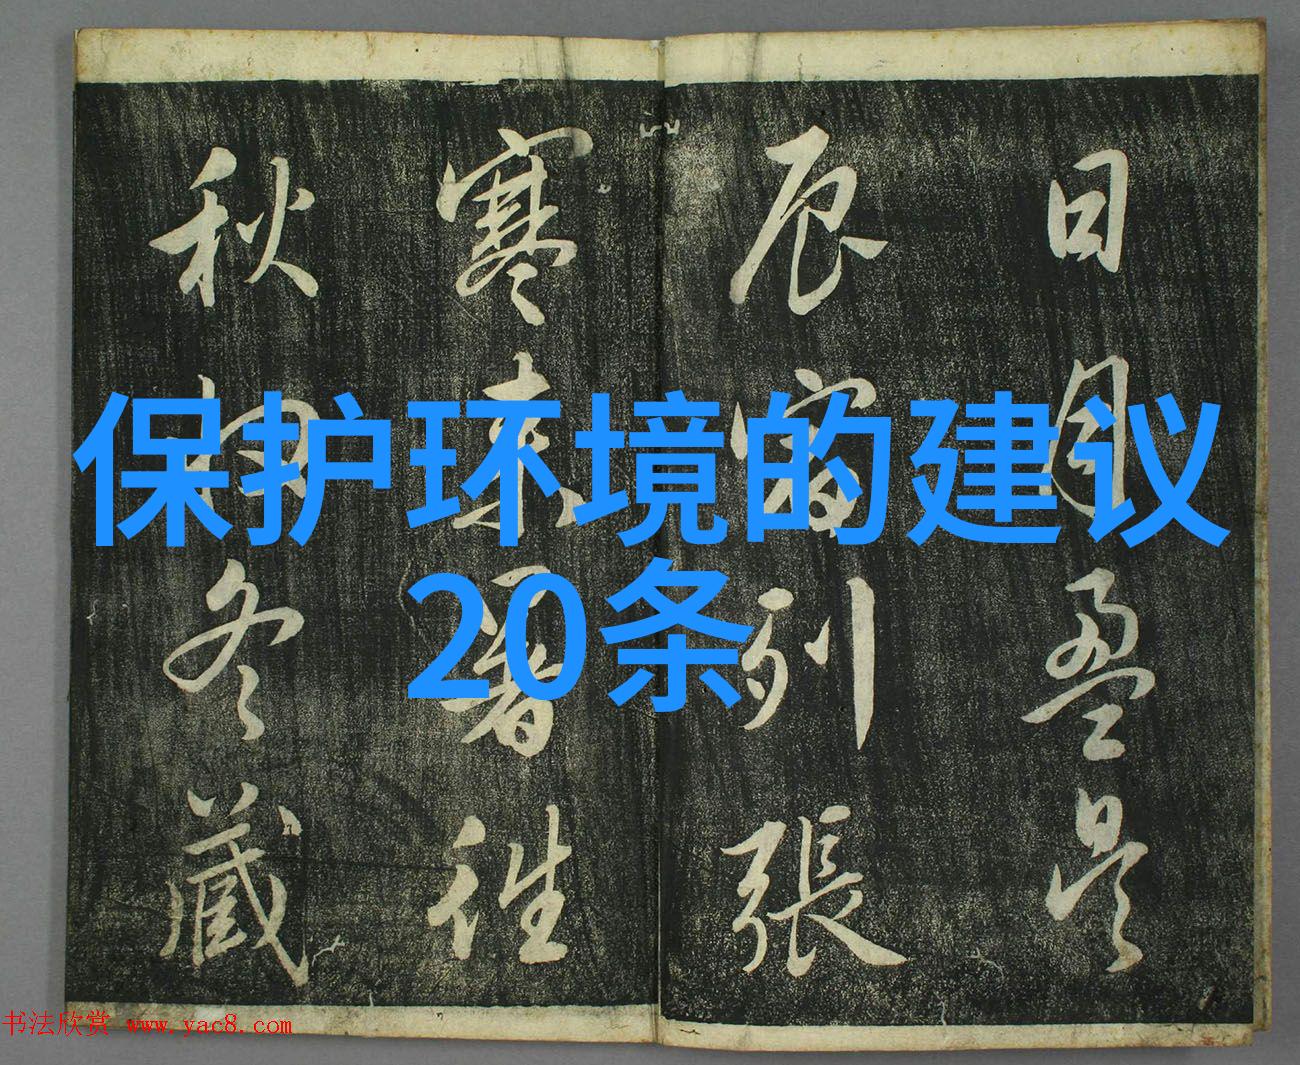 保护环境的建议
20条
日月盈昃
辰宿列張
寒来暑往
秋收冬藏
书法欣赏 www.yac8.com